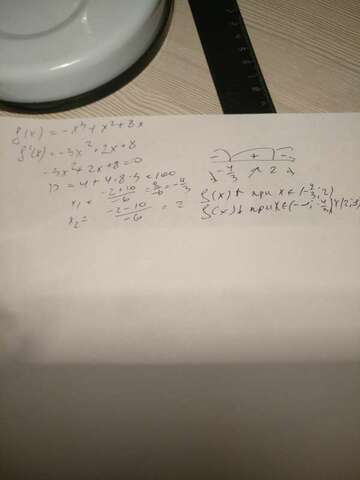 f(x) = -x³ + x² + 8x
f'(x) = -3x² + 2x + 8
-3x² + 2x + 8 = 0
D = 4 + 4·8·3 = 100
x₁ = (-2+10)/-6 = 8/-6 = -4/3
x₂ = (-2-10)/-6 = 2
- + -
-4/3 2
f(x)↑ при x ∈ (-4/3; 2)
f(x)↓ при x ∈ (-∞; -4/3)